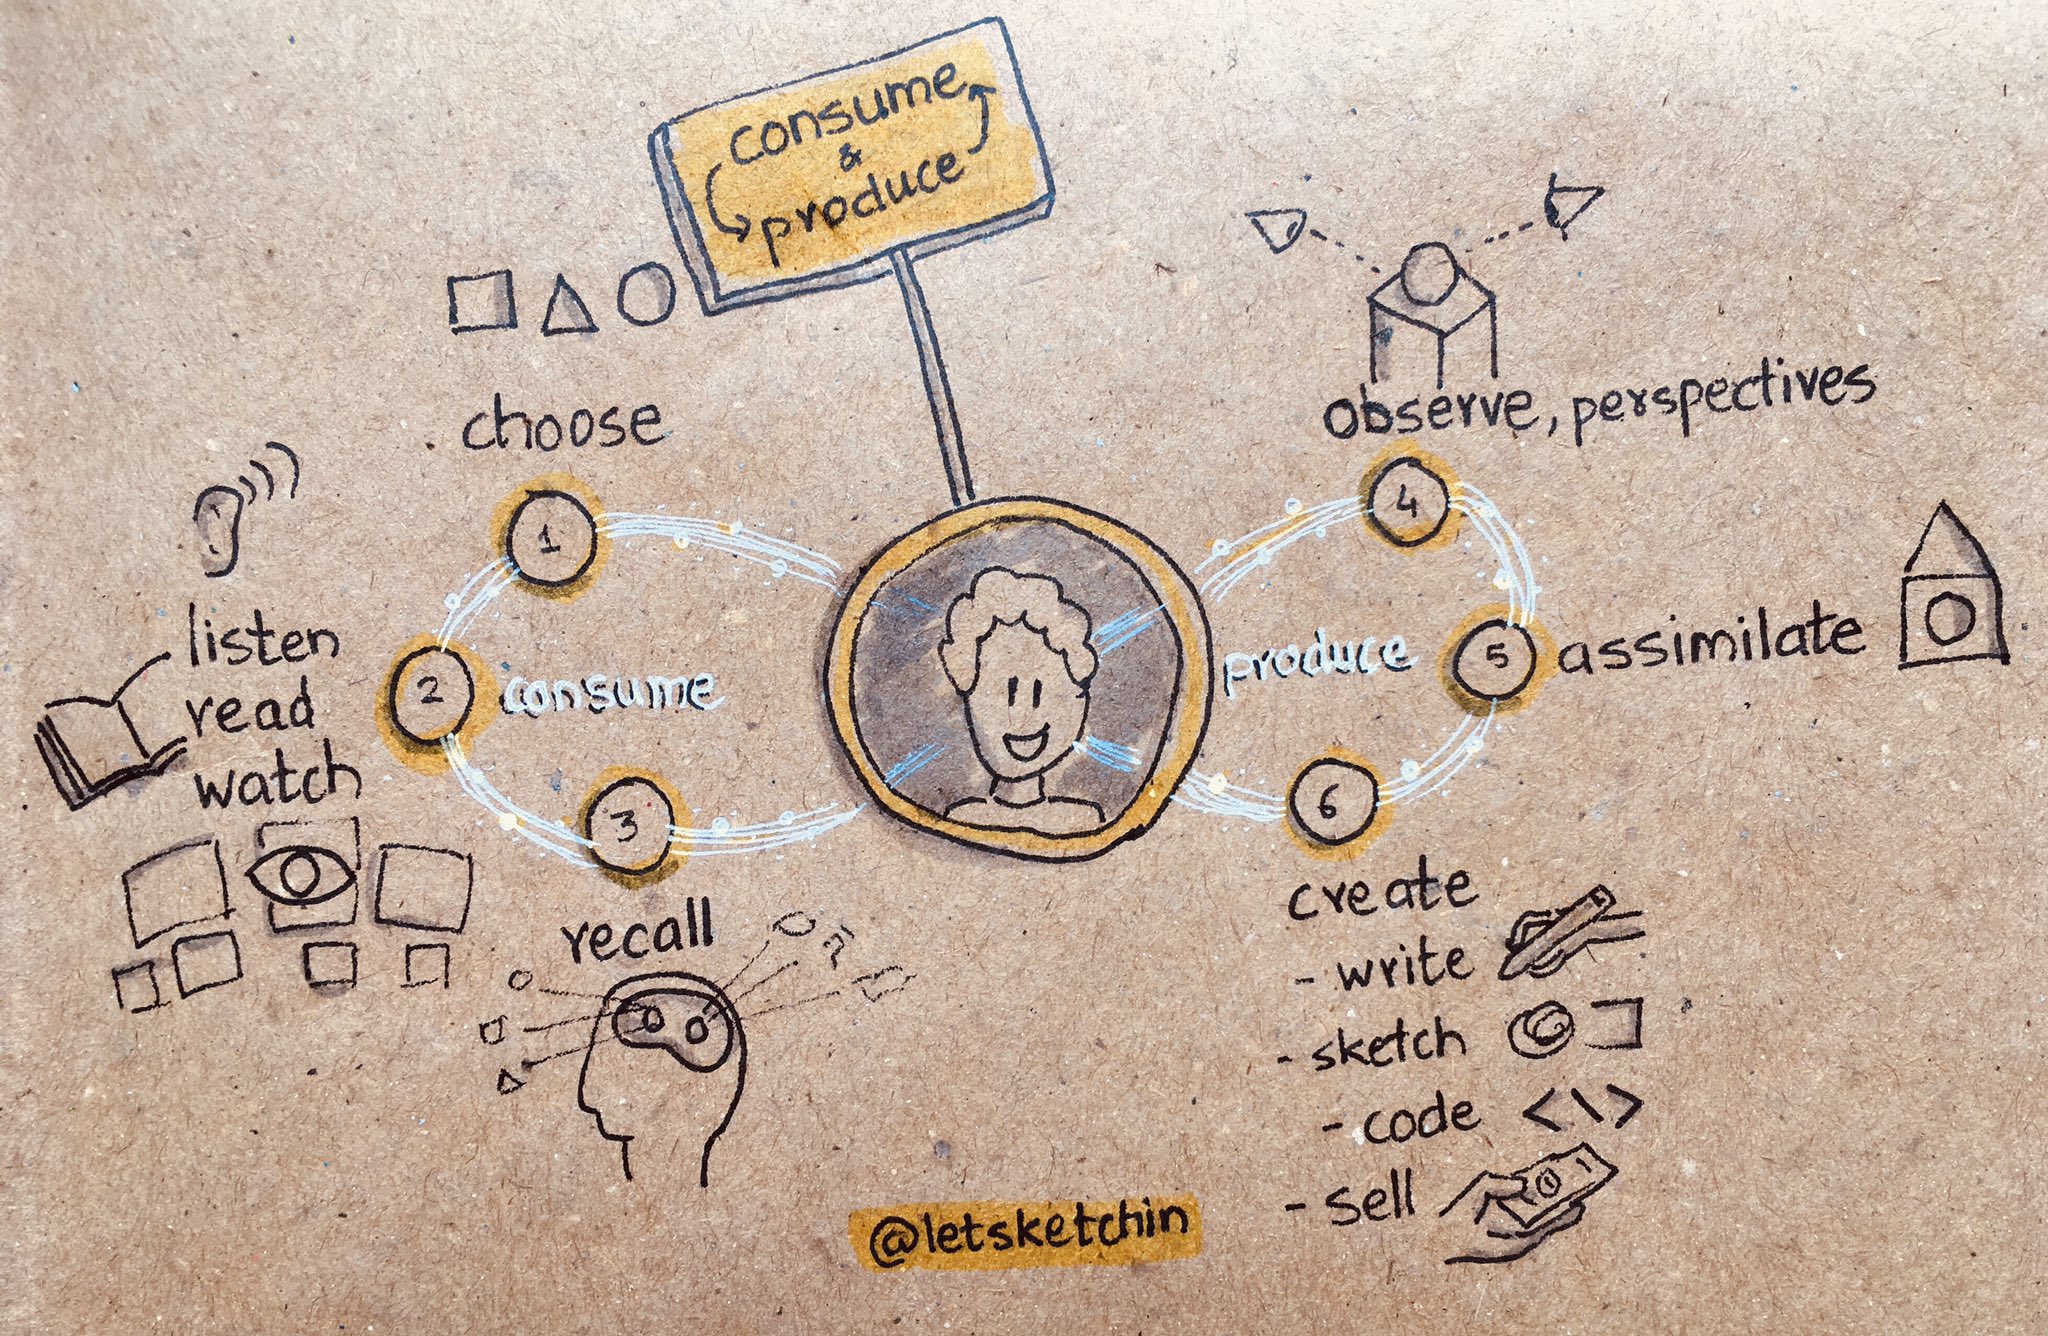 consume
&
produce
choose
1
listen
read
watch
2
consume
3
recall
observe, perspectives
4
produce
5
assimilate
6
create
- write
- sketch
- code <\>
- sell
@letsketchin